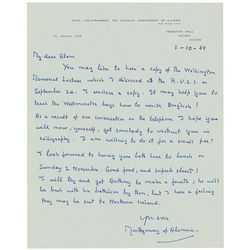 FIELD MARSHAL THE VISCOUNT MONTGOMERY OF ALAMEIN
ISINGTON MILL
ALTON
HANTS
1-10-69
My dear Alan
You may like to have a copy of the Wellington
Memorial Lecture which I delivered at the R.U.S.I. on
September 24. I enclose a copy. It may help you to
teach the Westminster boys how to write English!
As a result of our conversation on the telephone I hope you
will now, yourself, get somebody to instruct you in
calligraphy. I am willing to do it for a small fee!
I look forward to having you both here to lunch on
Sunday 2 November. Good food, and superb claret!
I will try and get Anthony to make a fourth; he will
be back with his battalion by then, but I have a feeling
they may be sent to Northern Ireland.
Yrs. ever
Montgomery of Alamein